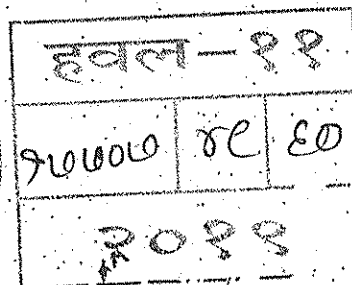 हवल-११
१७७०७ ४८ ६०
२०११